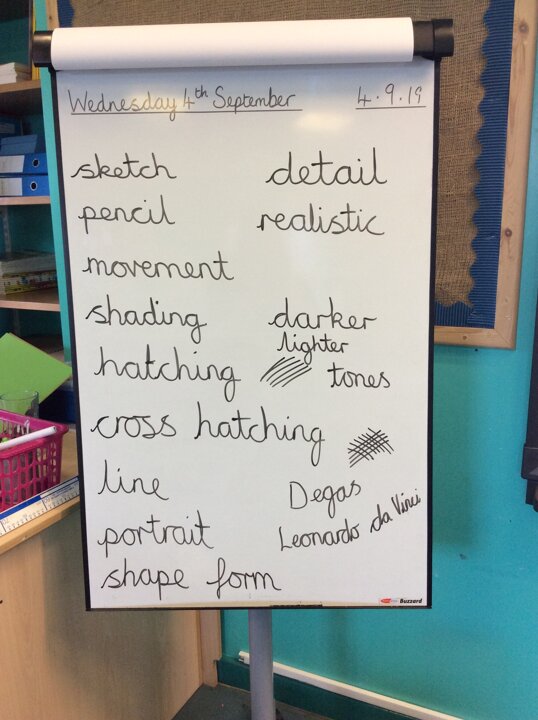 Wednesday 4th September 4.9.19
sketch detail
pencil realistic
movement
shading darker
lighter
hatching tones
cross hatching
line Degas
portrait Leonardo da Vinci
shape form
Buzzard